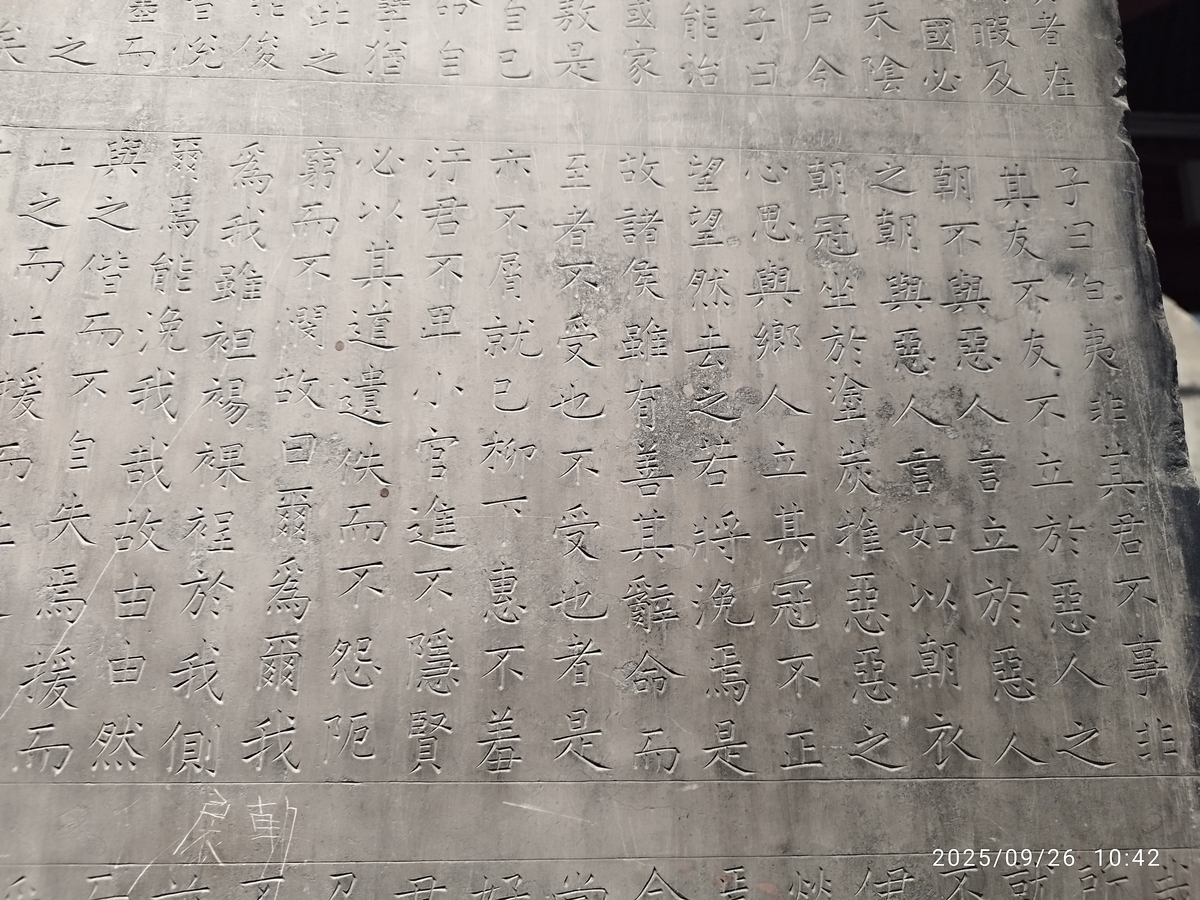 者在
暇及
國必
未陰
戶今
子曰
能治
國家
敖是
自己
命自
孽猶
此之
俊
皆悅
廛而
之
矣
子曰伯夷非其君不事非
其友不友不立於惡人之
朝不與惡人言立於惡人
之朝與惡人言如以朝衣
朝冠坐於塗炭推惡惡之
心思與鄉人立其冠不正
望望然去之若將浼焉是
故諸侯雖有善其辭命而
至者不受也不受也者是
亦不屑就已柳下惠不羞
汙君不卑小官進不隱賢
必以其道遺佚而不怨阨
窮而不憫故曰爾為爾我
為我雖袒裼裸裎於我側
爾焉能浼我哉故由由然
與之偕而不自失焉援而
止之而止援而
2025/09/26 10:42